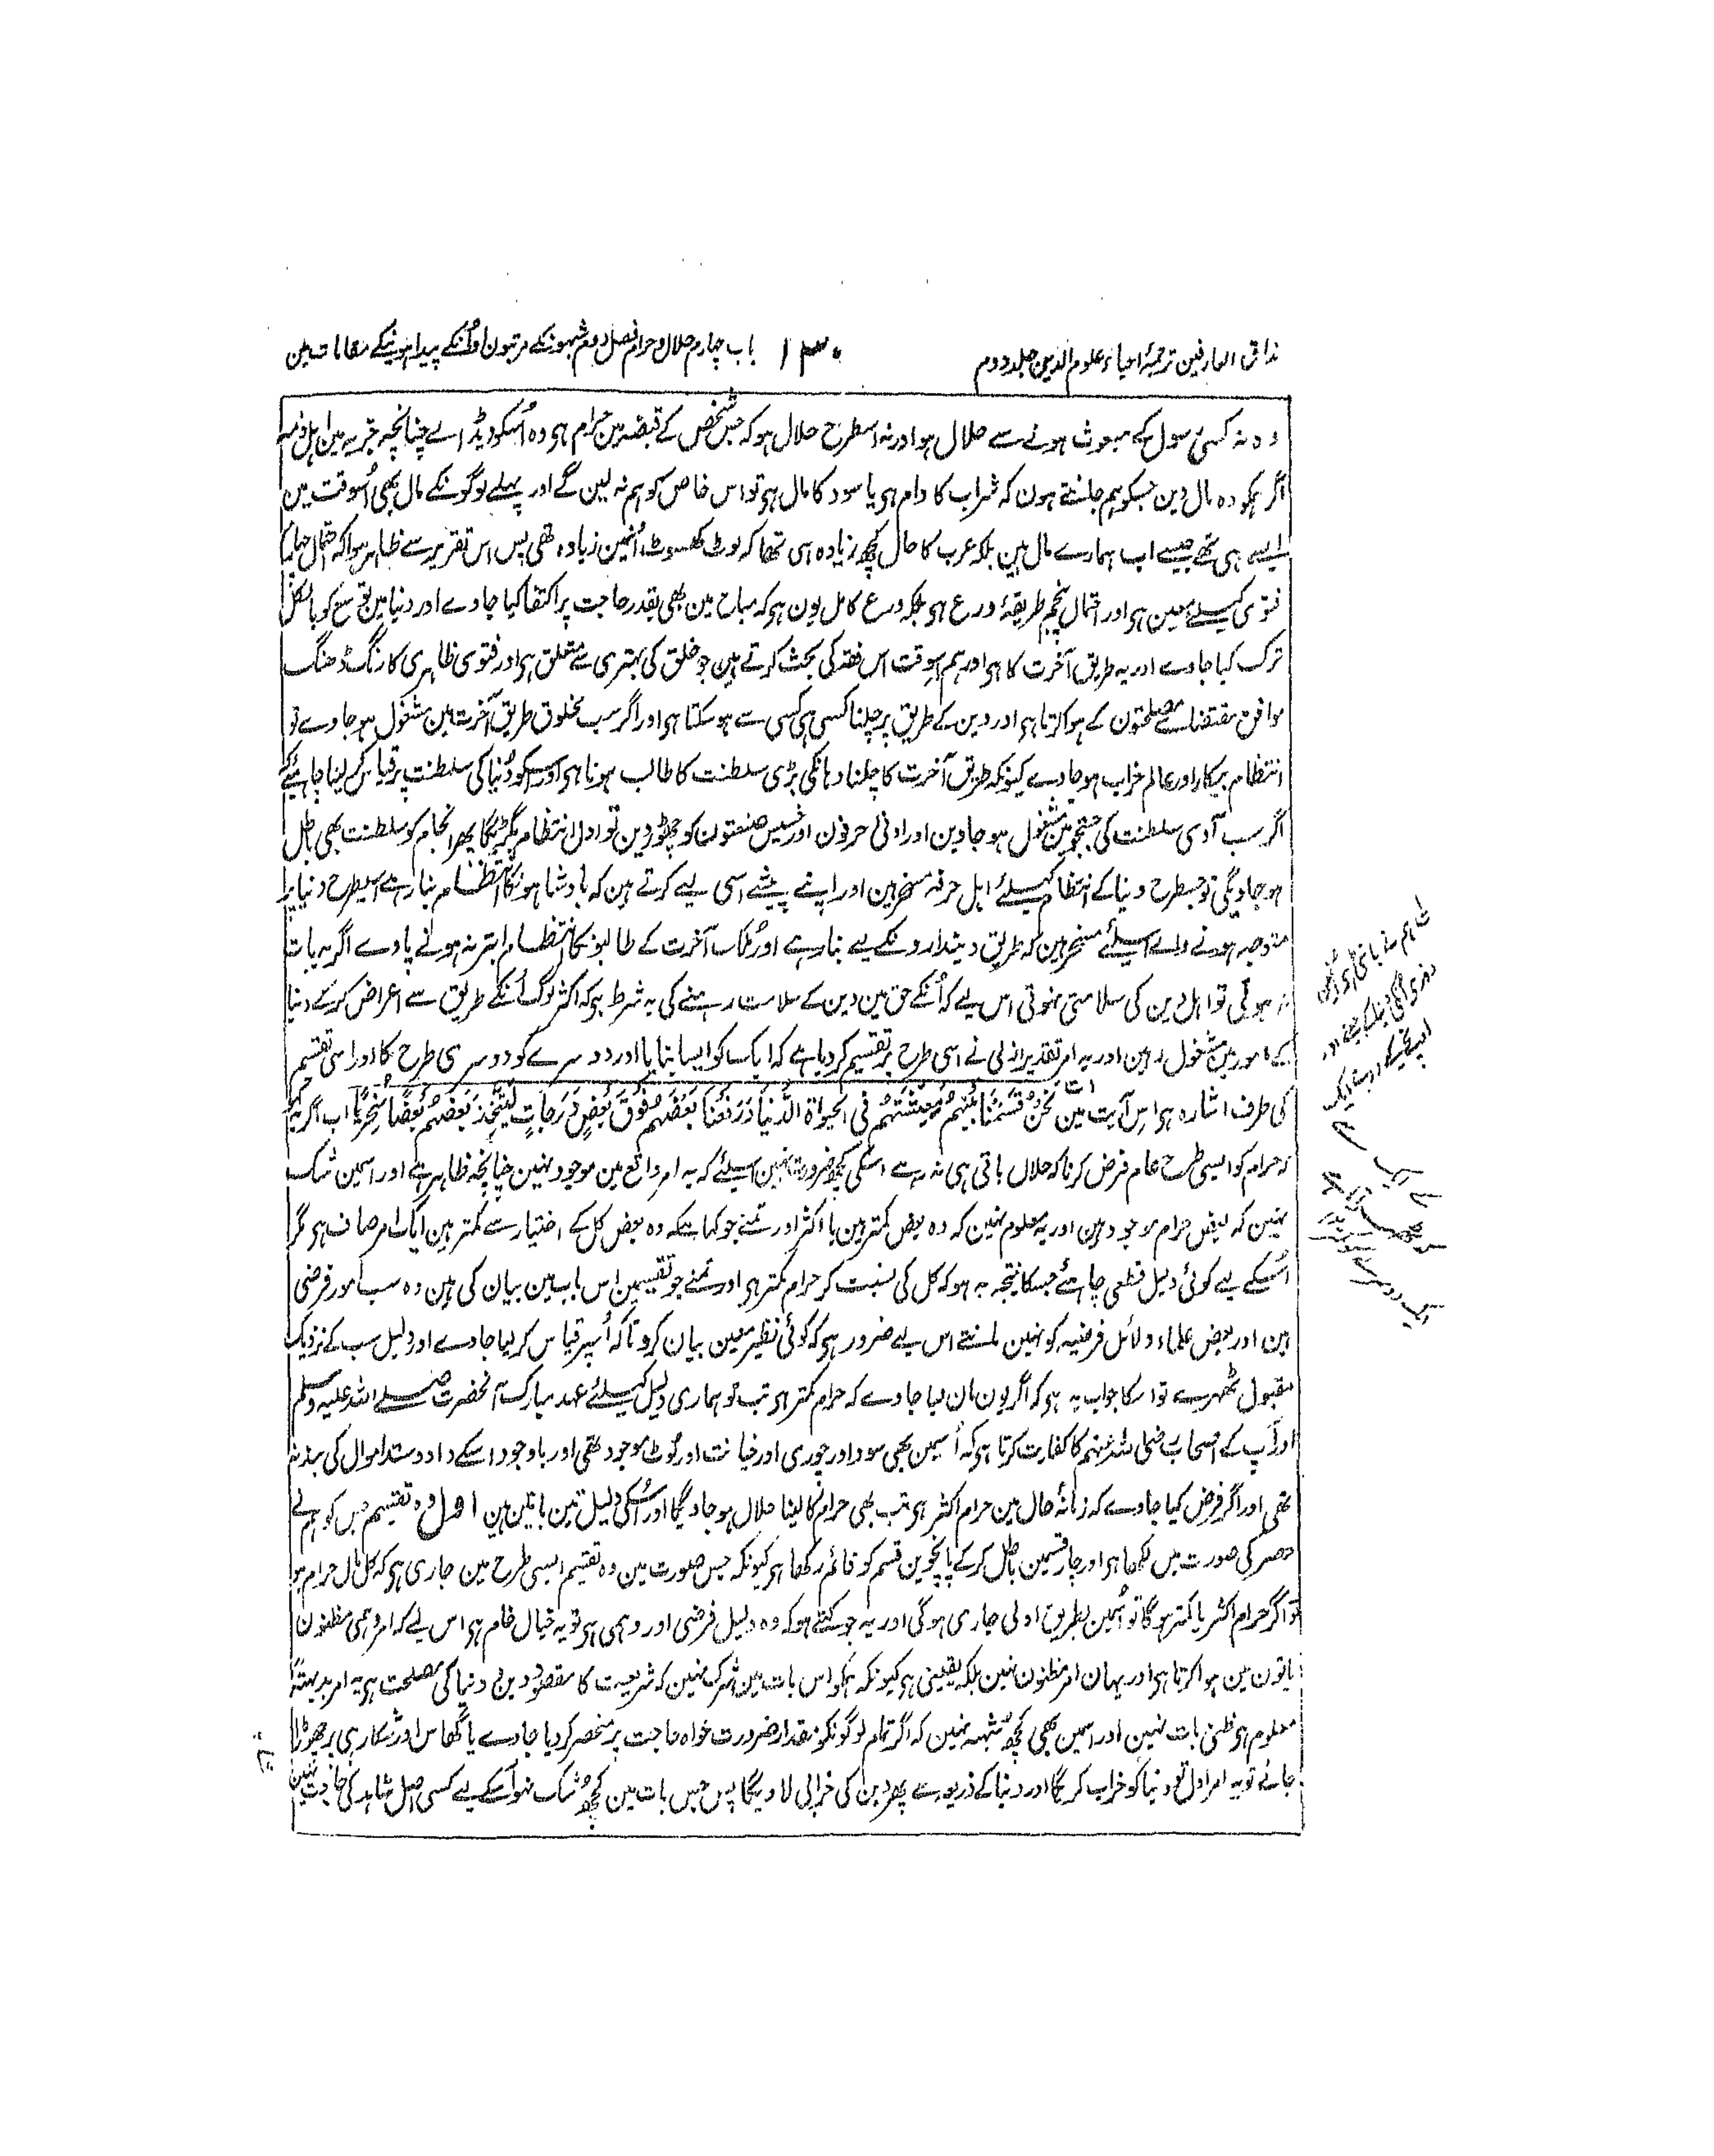 مذاق العارفین ترجمۂ احیاء علوم الدین جلد دوم
۱۳۰
باب چہارم حلال و حرام فصل دوم شبہونکے مرتبون اور اُنکے پیدا ہونیکے مقامات مین
وہ نہ کسی رسول کے مبعوث ہونے سے حلال ہو اور نہ اسطرح حلال ہو کہ جس شخص کے قبضہ مین حرام ہی وہ اُسکو دیڈالے چنانچہ جزیہ مین اہل ذمہ
اگر ہمکو وہ مال دین جسکو ہم جانتے ہون کہ شراب کا دام ہی یا سود کا مال ہی تو اس خاص کو ہم نہ لین گے اور پہلے لوگونکے مال بھی اُسوقت مین
ایسے ہی تھے جیسے اب ہمارے مال ہین بلکہ عرب کا حال کچھ زیادہ ہی تھا کہ لوٹ کھسوٹ اُنمین زیادہ تھی پس اس تقریر سے ظاہر ہوا کہ احتمال چہارم
فتوی کیلیے معین ہی اور احتمال پنجم طریقۂ ورع ہی بلکہ ورع کامل یون ہی کہ مباح مین بھی بقدر حاجت پر اکتفا کیا جاوے اور دنیا مین توسع کو بالکل
ترک کیا جاوے اور یہ طریق آخرت کا ہی اور ہم اسوقت اس فقہ کی بحث کرتے ہین جو خلق کی بہتری سے متعلق ہی اور فتوی ظاہری کا رنگ ڈھنگ
موافق مقتضاے مصلحتون کے ہوا کرتا ہی اور دین کے طریق پر چلنا کسی ہی کسی سے ہو سکتا ہی اور اگر سب مخلوق طریق آخرت مین مشغول ہو جاوے تو
انتظام بیکار اور عالم خراب ہو جاوے کیونکہ طریق آخرت کا چلنا وہانکی بڑی سلطنت کا طالب ہونا ہی اور اسکو دُنیا کی سلطنت پر قیاس کر لینا چاہیئے کہ
اگر سب آدمی سلطنت کی جستجو مین مشغول ہو جاوین اور ادنی حرفون اور خسیس صنعتون کو چھوڑ دین تو اول انتظام بگڑیگا پھر انجام کو سلطنت بھی باطل
ہو جاویگی تو جسطرح دنیا کے انتظام کیلئے اہل حرفہ مسخر ہین اور اپنے پیشے اسی لیے کرتے ہین کہ بادشاہونکا انتظام بنا رہے اسیطرح دنیا پر
متوجہ ہونے والے اسیلئے مسخر ہین کہ طریق دیندارونکے لیے بنا رہے اور مُلک آخرت کے طالبونکا انتظام ابتر نہ ہونے پاوے اگر یہ بات
نہ ہوتی تو اہل دین کی سلامتی نہوتی اس لیے کہ اُنکے حق مین دین کے سلامت رہنے کی یہ شرط ہی کہ اکثر لوگ اُنکے طریق سے اعراض کر کے دنیا
کے امور مین مشغول رہین اور یہ امر تقدیر ازلی نے اسی طرح پر تقسیم کر دیا ہے کہ ایک کو ایسا بنایا اور دوسرے کو دوسری طرح کا اور اسی تقسیم
کی طرف اشارہ ہی اس آیت مین نَحْنُ قَسَمْنَا بَيْنَهُمْ مَعِيشَتَهُمْ فِي الْحَيٰوةِ الدُّنْيَا وَرَفَعْنَا بَعْضَهُمْ فَوْقَ بَعْضٍ دَرَجَاتٍ لِيَتَّخِذَ بَعْضُهُمْ بَعْضًا سُخْرِيًّا اب اگر یہ کہو
کہ حرام کو ایسی طرح عام فرض کرنا کہ حلال باقی ہی نہ رہے اسکی کچھ ضرورت نہین اسیلئے کہ یہ امر واقع مین موجود نہین چنانچہ ظاہر ہے اور اسمین شک
نہین کہ بعض حرام موجود ہین اور یہ معلوم نہین کہ وہ بعض کمتر ہین یا اکثر اور تمنے جو کہا ہیکہ وہ بعض کل کے اعتبار سے کمتر ہین ایک امر صاف ہی مگر
اسکے لیے کوئی دلیل قطعی چاہئے جسکا نتیجہ یہ ہو کہ کل کی نسبت کر حرام کمتر ہی اور تمنے جو تقسیمین اس باب مین بیان کی ہین وہ سب امور فرضی
ہین اور بعض علماء دلائل فرضیہ کو نہین مانتے اس لیے ضرور ہی کہ کوئی نظیر معین بیان کرو تاکہ اُسپر قیاس کر لیا جاوے اور دلیل سب کے نزدیک
مقبول ٹھہرے تو اسکا جواب یہ ہی کہ اگر یون مان لیا جاوے کہ حرام کمتر ہی تب تو ہماری دلیل کیلئے عہد مبارک آنحضرت صلے اللہ علیہ وسلم
اور آپ کے اصحاب رضی اللہ عنہم کا کفایت کرتا ہی کہ اُسمین بھی سود اور چوری اور خیانت اور لُوٹ موجود تھی اور باوجود اسکے داد و ستد اموال کی بند نہ
تھی اور اگر فرض کیا جاوے کہ زمانۂ حال مین حرام اکثر ہی تب بھی حرام کا لینا حلال ہو جاویگا اور اُسکی دلیل تین باتین ہین اول وہ تقسیم جس کو ہمنے
حصر کی صورت مین لکھا ہی اور چار قسمین باطل کر کے پانچوین قسم کو قائم رکھا ہی کیونکہ جس صورت مین وہ تقسیم ایسی طرح مین جاری ہی کہ کل مال حرام ہو
تو اگر حرام اکثر یا کمتر ہو گا تو اُسمین بطریق اولی جاری ہو گی اور یہ جو کہتے ہو کہ وہ دلیل فرضی اور وہمی ہی تو یہ خیال خام ہی اس لیے کہ امر وہمی مظنون
باتون مین ہوا کرتا ہی اور یہان امر مظنون نہین بلکہ یقینی ہی کیونکہ ہمکو اس بات مین شک نہین کہ شریعت کا مقصود دین و دنیا کی مصلحت ہی یہ امر بدیہۃً
معلوم ہی ظنی بات نہین اور اسمین بھی کچھ شبہہ نہین کہ اگر تمام لوگونکو مقدار ضرورت خواہ حاجت پر منحصر کر دیا جاوے یا گھاس اور شکار ہی پر چھوڑا
جائے تو یہ امر اول تو دنیا کو خراب کریگا اور دنیا کے ذریعہ سے پھر دین کی خرابی لاویگا پس جس بات مین کچھ شک نہو اُسکے لیے کسی اصل شاہد کی حاجت نہین